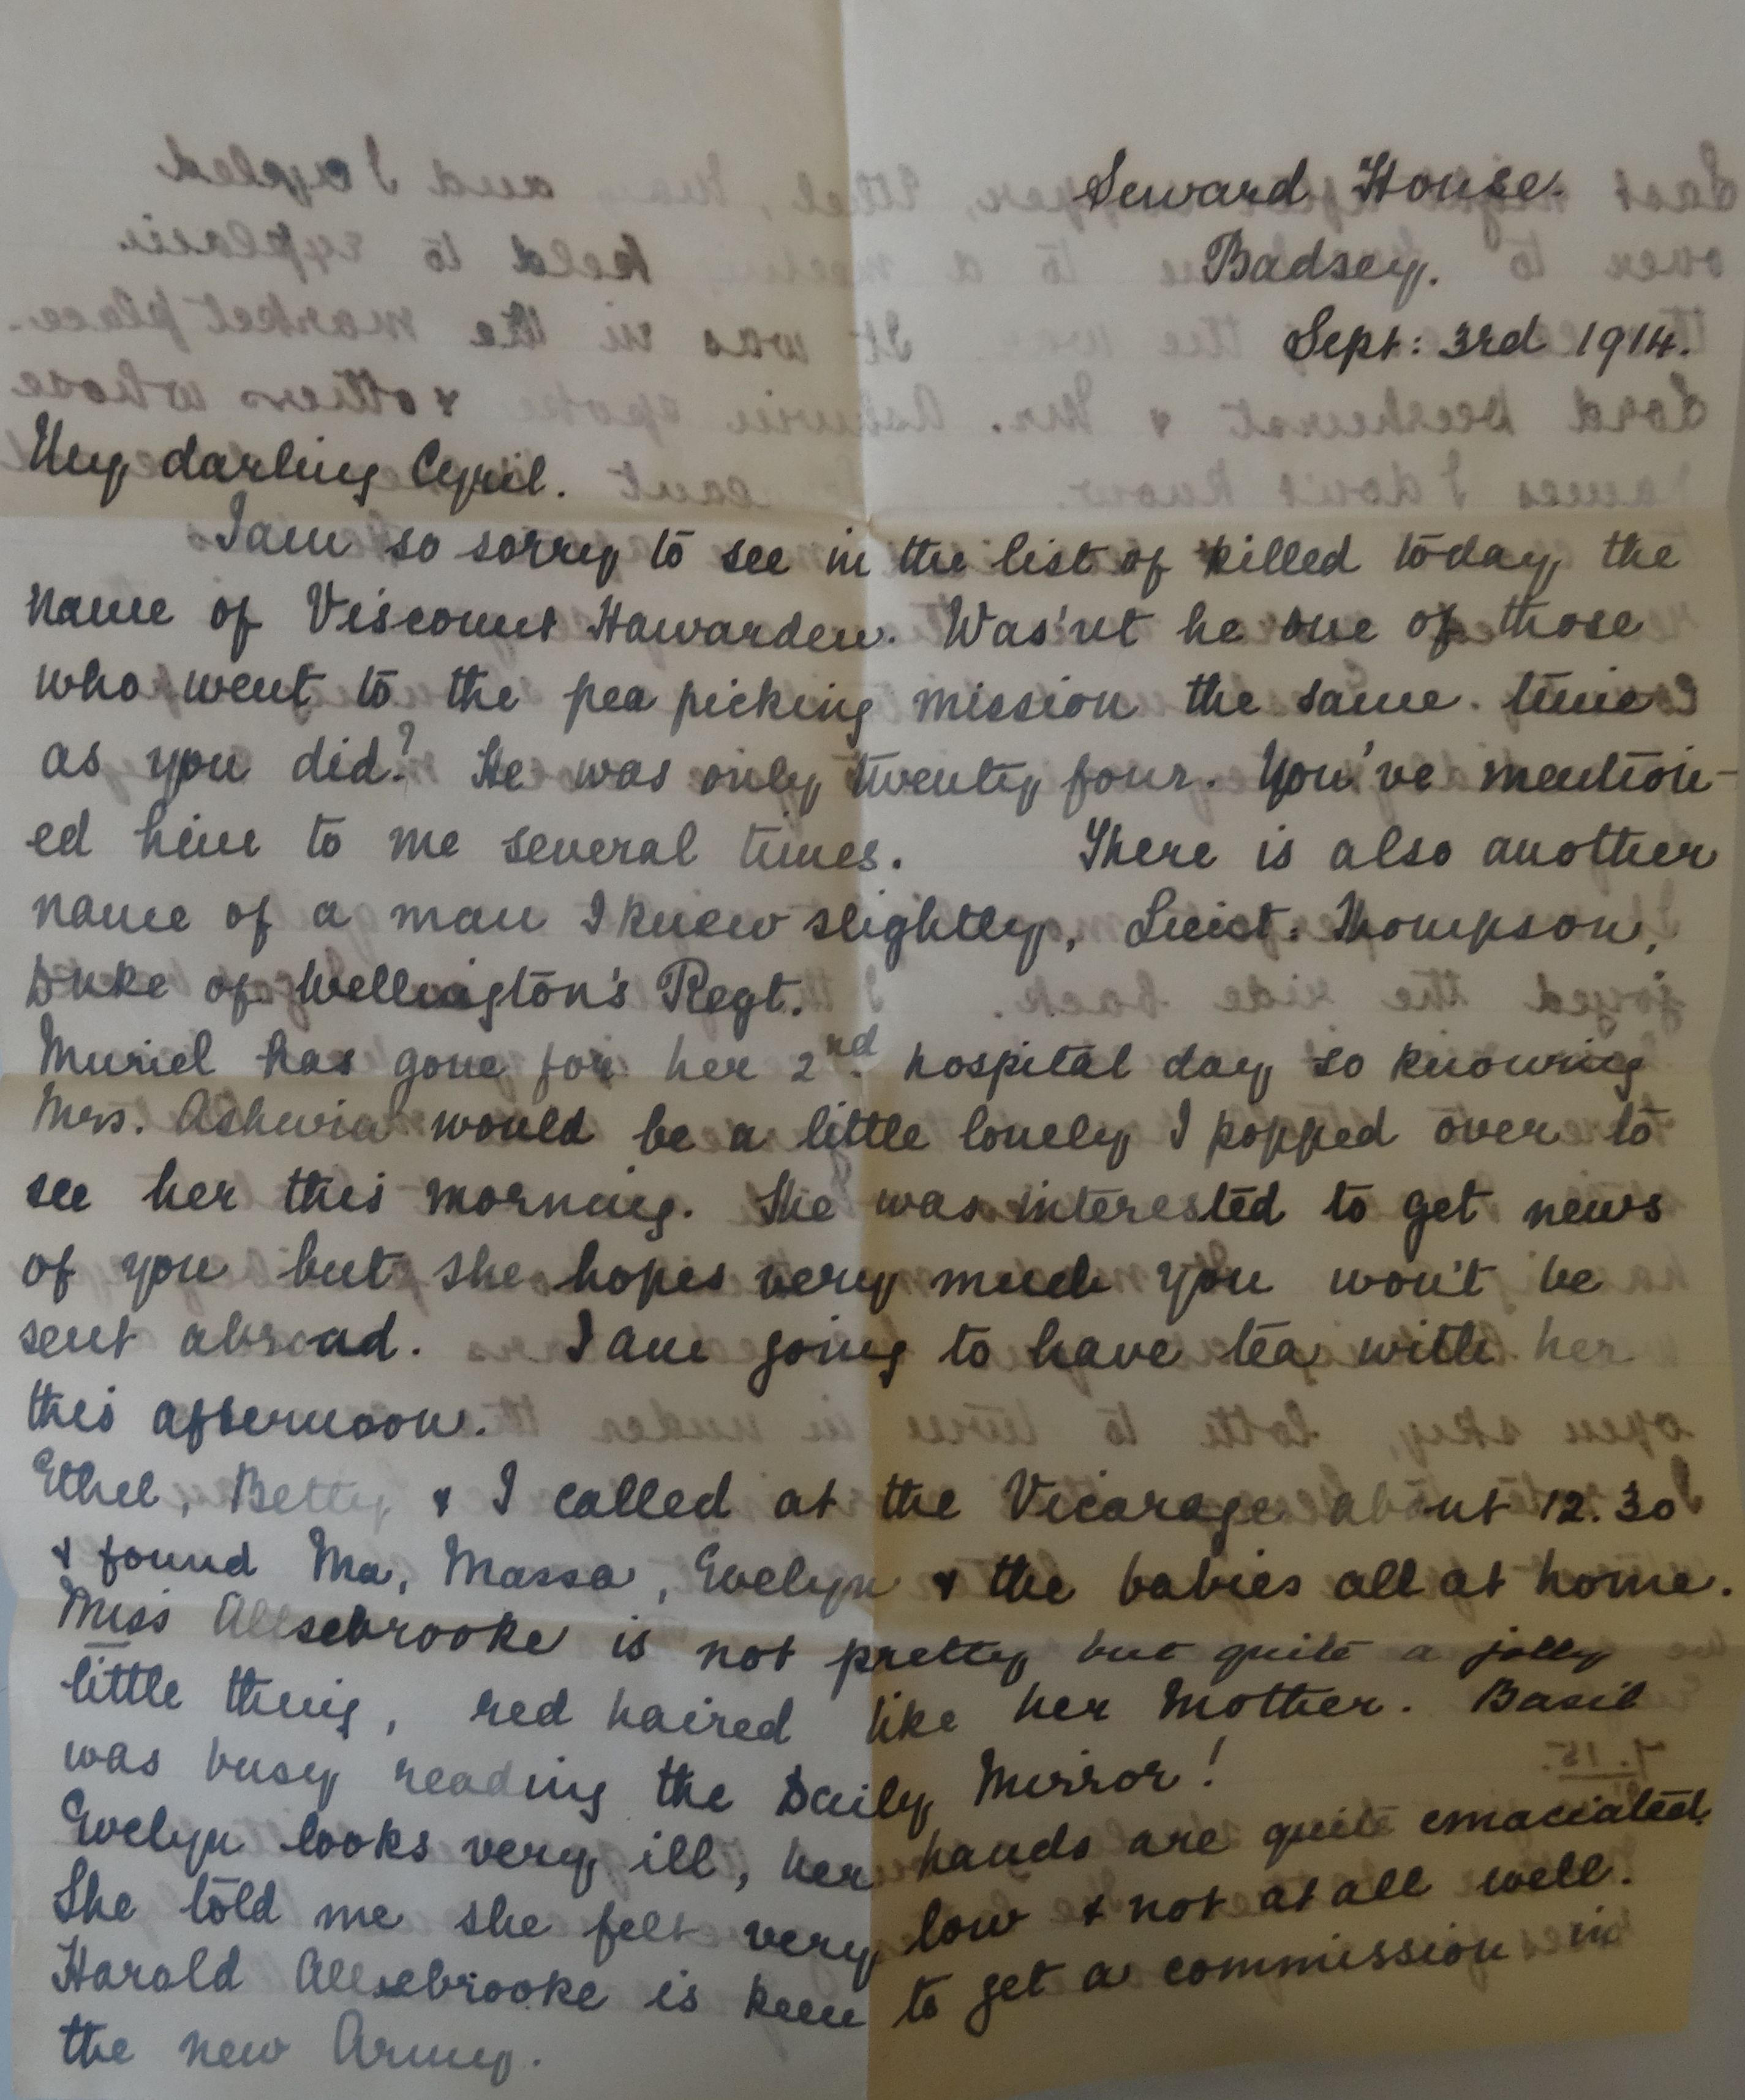 Seward House.
Badsey.
Sept: 3rd 1914.
My darling Cyril.
I am so sorry to see in the list of killed today, the
name of Viscount Hawarden. Was'nt he one of those
who went to the pea picking mission the same time
as you did? He was only twenty four. You've mention-
ed him to me several times. There is also another
name of a man I knew slightly, Lieut: Thompson,
Duke of Wellington's Regt.
Muriel has gone for her 2nd hospital day so knowing
Mrs. Ashwin would be a little lonely I popped over to
see her this morning. She was interested to get news
of you but she hopes very much you won't be
sent abroad. I am going to have tea with her
this afternoon.
Ethel, Betty & I called at the Vicarage about 12.30
& found Ma, Massa, Evelyn & the babies all at home.
Miss Allsebrooke is not pretty but quite a jolly
little thing, red haired like her Mother. Basil
was busy reading the Daily Mirror!
Evelyn looks very ill, her hands are quite emaciated.
She told me she felt very low & not at all well.
Harold Allsebrooke is keen to get a commission in
the new Army.